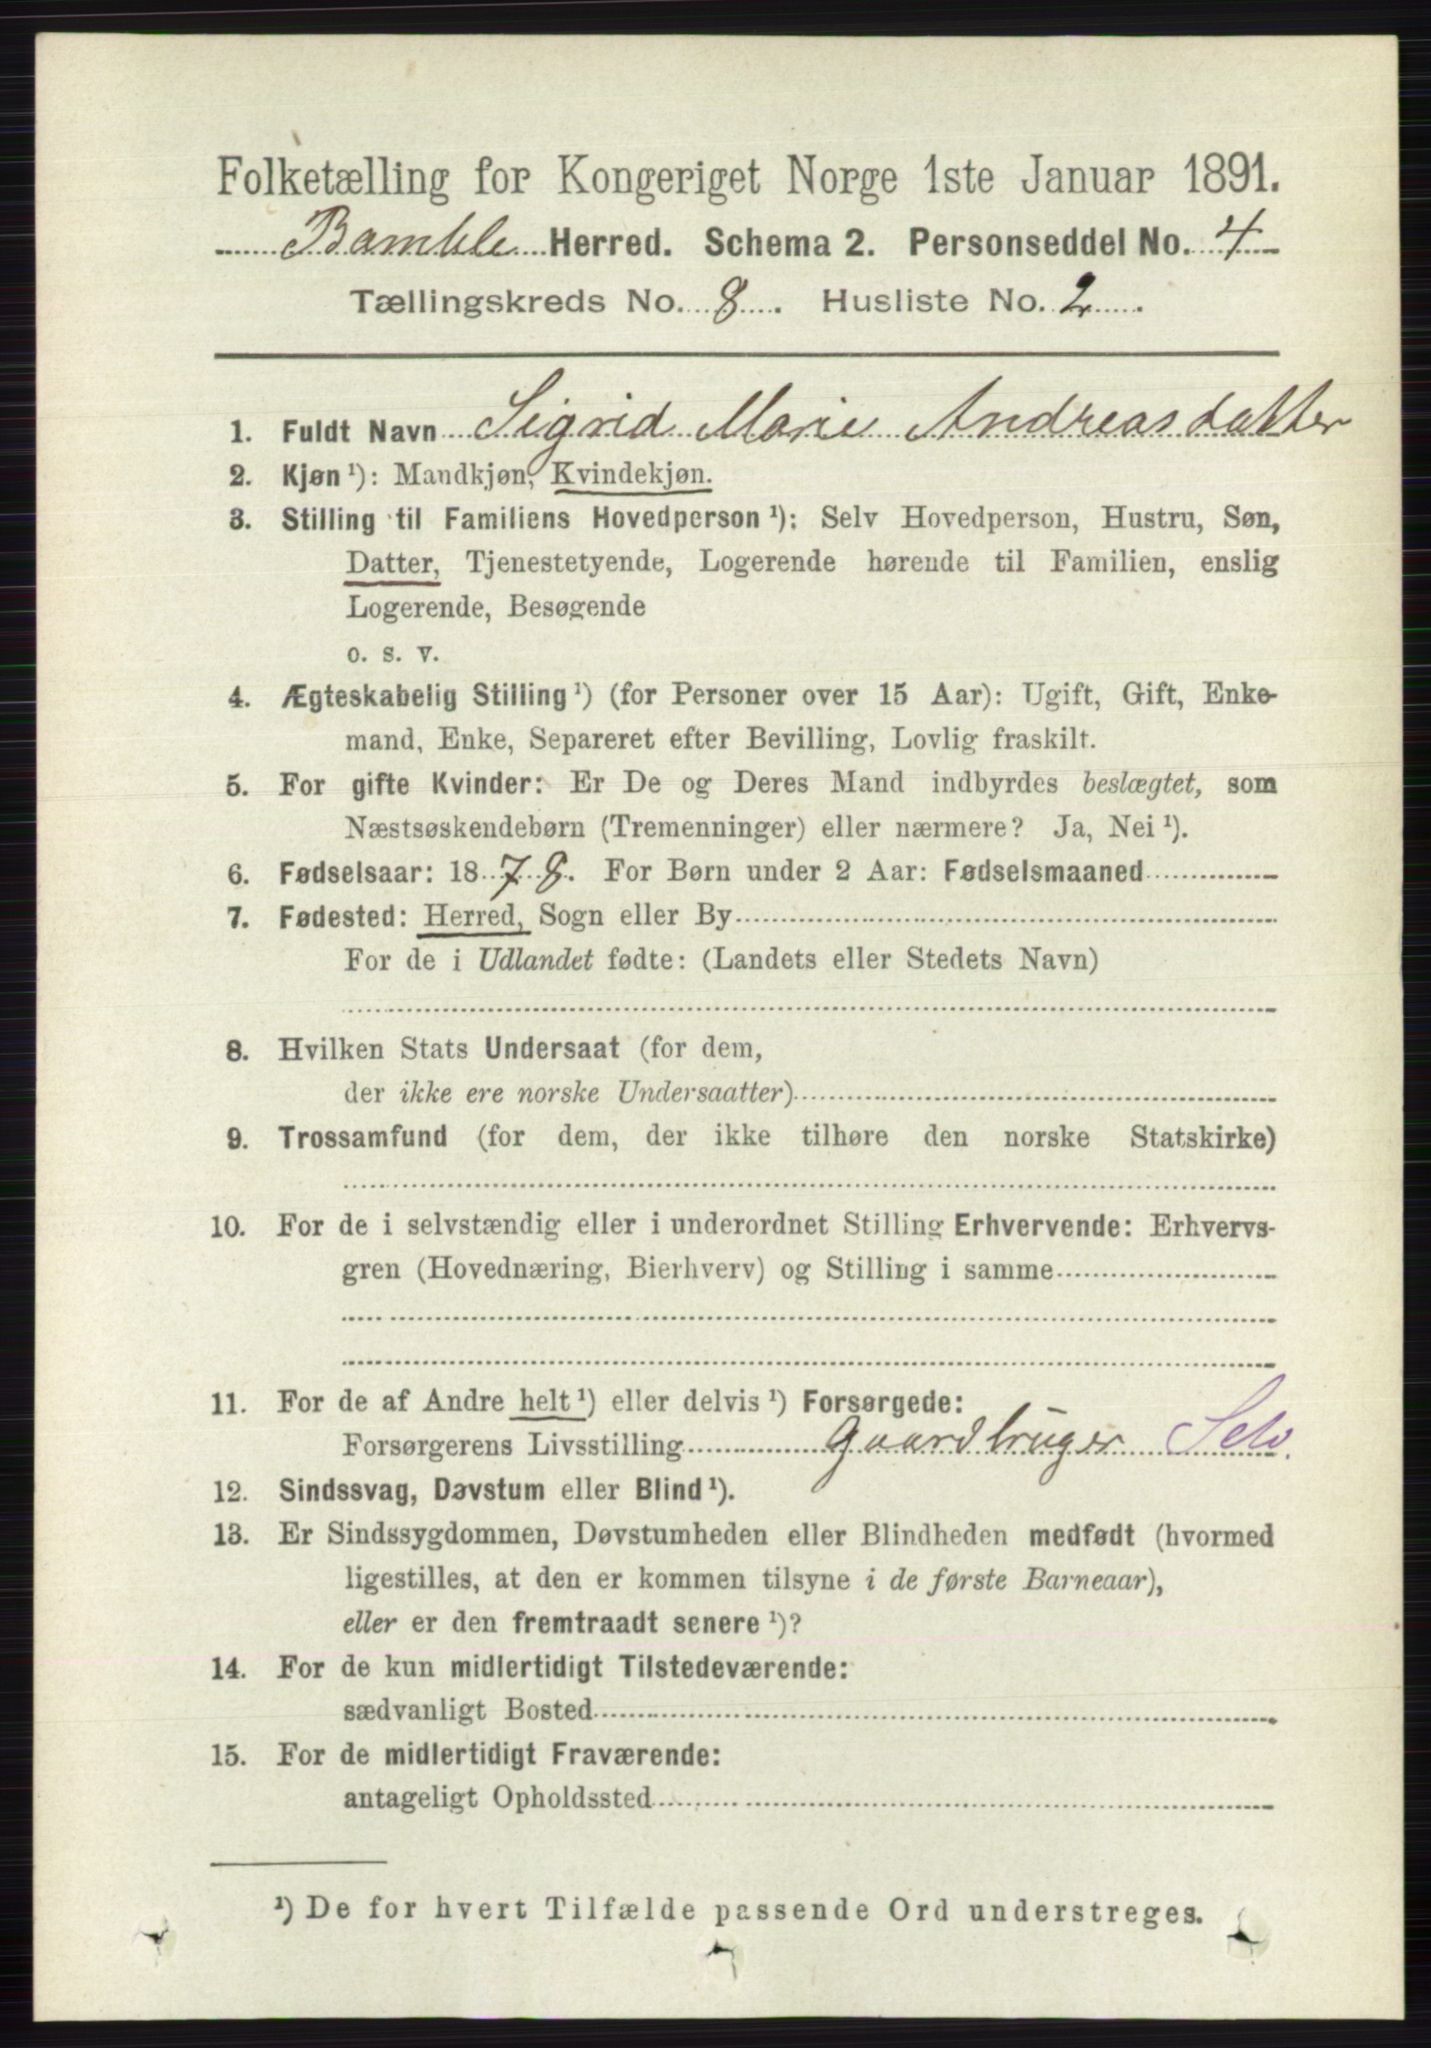 Folketælling for Kongeriget Norge 1ste Januar 1891.
Bamble Herred. Schema 2. Personseddel No. 4
Tællingskreds No. 8. Husliste No. 2.
1. Fuldt Navn Sigrid Marie Andreasdatter
2. Kjøn ¹): Mandkjøn, Kvindekjøn.
3. Stilling til Familiens Hovedperson ¹): Selv Hovedperson, Hustru, Søn,
Datter, Tjenestetyende, Logerende hørende til Familien, enslig
Logerende, Besøgende
o. s. v.
4. Ægteskabelig Stilling ¹) (for Personer over 15 Aar): Ugift, Gift, Enke-
mand, Enke, Separeret efter Bevilling, Lovlig fraskilt.
5. For gifte Kvinder: Er De og Deres Mand indbyrdes beslægtet, som
Næstsøskendebørn (Tremenninger) eller nærmere? Ja, Nei ¹).
6. Fødselsaar: 1878. For Børn under 2 Aar: Fødselsmaaned
7. Fødested: Herred, Sogn eller By
For de i Udlandet fødte: (Landets eller Stedets Navn)
8. Hvilken Stats Undersaat (for dem,
der ikke ere norske Undersaatter)
9. Trossamfund (for dem, der ikke tilhøre den norske Statskirke)
10. For de i selvstændig eller i underordnet Stilling Erhvervende: Erhvervs-
gren (Hovednæring, Bierhverv) og Stilling i samme
11. For de af Andre helt ¹) eller delvis ¹) Forsørgede:
Forsørgerens Livsstilling Gaardbruger Selv.
12. Sindssvag, Døvstum eller Blind ¹).
13. Er Sindssygdommen, Døvstumheden eller Blindheden medfødt (hvormed
ligestilles, at den er kommen tilsyne i de første Barneaar),
eller er den fremtraadt senere ¹)?
14. For de kun midlertidigt Tilstedeværende:
sædvanligt Bosted
15. For de midlertidigt Fraværende:
antageligt Opholdssted
¹) De for hvert Tilfælde passende Ord understreges.